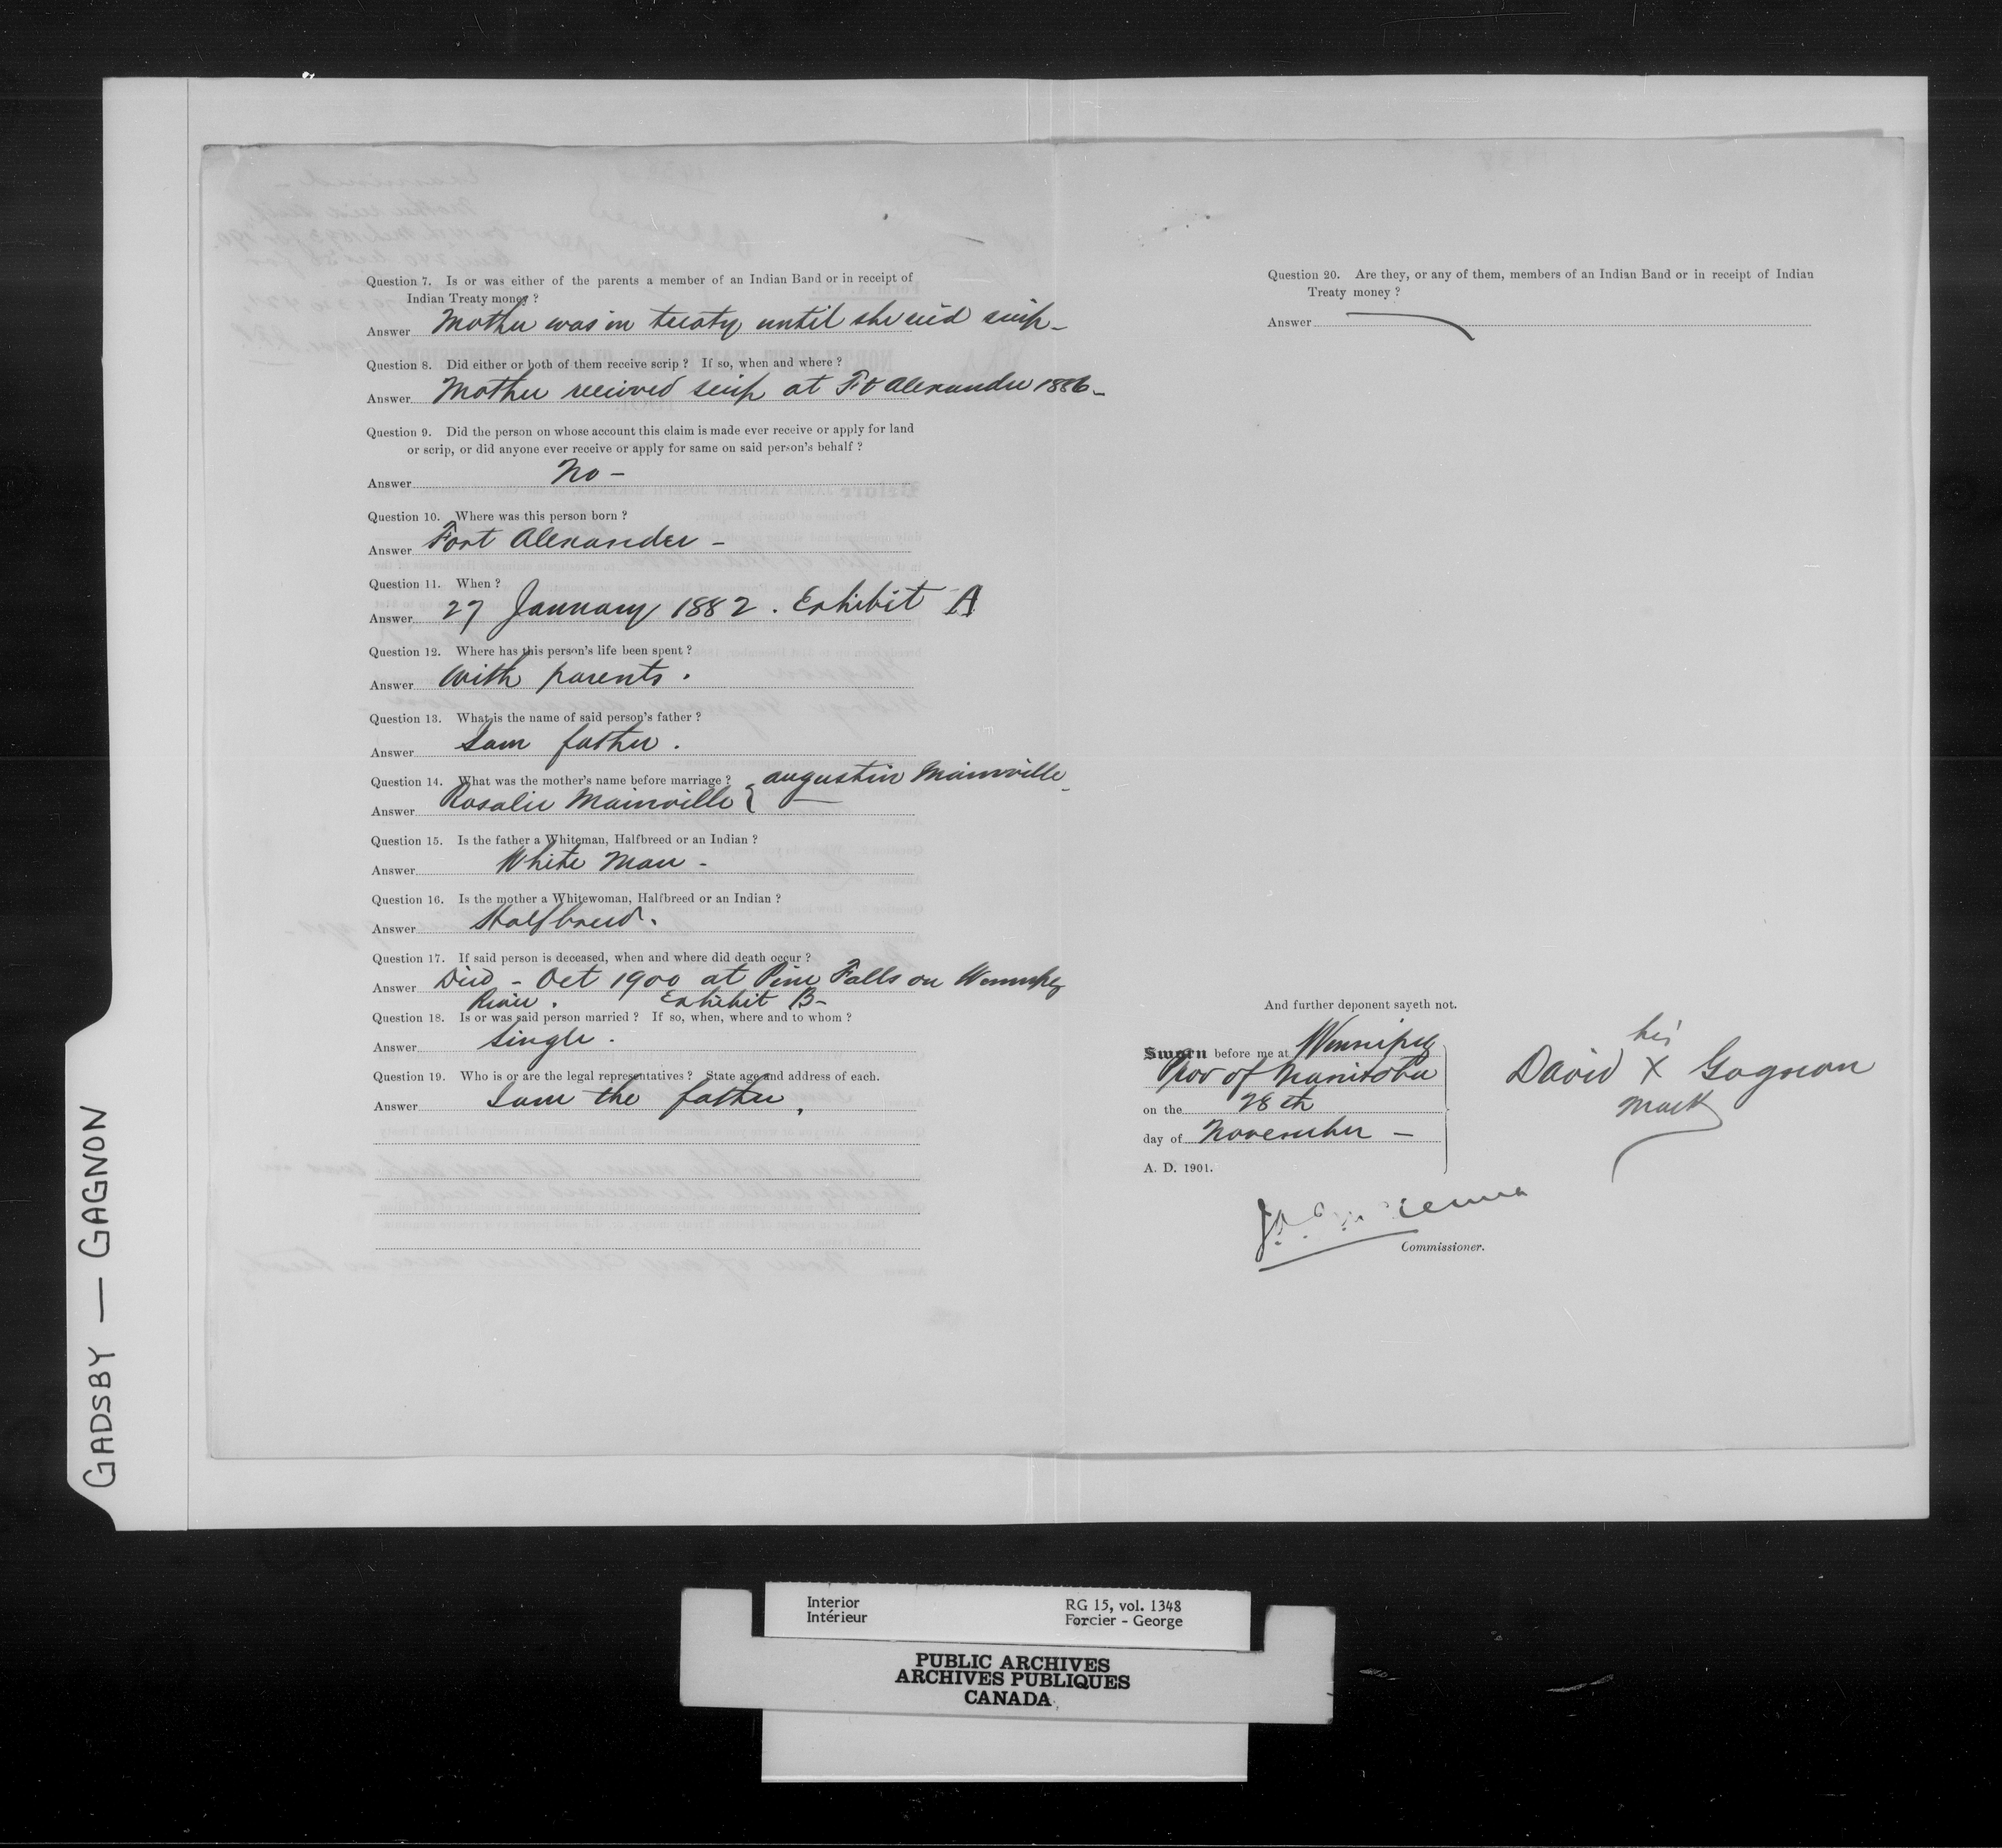 Question 7. Is or was either of the parents a member of an Indian Band or in receipt of
Indian Treaty money ?
Answer Mother was in treaty until she recd scrip -
Question 8. Did either or both of them receive scrip ? If so, when and where ?
Answer Mother received scrip at Ft Alexander 1886 -
Question 9. Did the person on whose account this claim is made ever receive or apply for land
or scrip, or did anyone ever receive or apply for same on said person's behalf ?
Answer No -
Question 10. Where was this person born ?
Answer Fort Alexander -
Question 11. When ?
Answer 27 January 1882. Exhibit A
Question 12. Where has this person's life been spent ?
Answer With parents.
Question 13. What is the name of said person's father ?
Answer I am father.
Question 14. What was the mother's name before marriage ? { Augustin Mainville -
Answer Rosalie Mainville
Question 15. Is the father a Whiteman, Halfbreed or an Indian ?
Answer White Man -
Question 16. Is the mother a Whitewoman, Halfbreed or an Indian ?
Answer Halfbreed.
Question 17. If said person is deceased, when and where did death occur ?
Answer Died - Oct 1900 at Pine Falls on Winnipeg
River. Exhibit B -
Question 18. Is or was said person married ? If so, when, where and to whom ?
Answer Single.
Question 19. Who is or are the legal representatives ? State age and address of each.
Answer I am the father.
Question 20. Are they, or any of them, members of an Indian Band or in receipt of Indian
Treaty money ?
Answer
And further deponent sayeth not.
Sworn before me at Winnipeg
Prov of Manitoba
on the 28th
day of November -
A. D. 1901.
his
David X Gagnon
mark
J.A. McKenna
Commissioner.
GADSBY — GAGNON
Interior
Intérieur
RG 15, vol. 1348
Forcier - George
PUBLIC ARCHIVES
ARCHIVES PUBLIQUES
CANADA